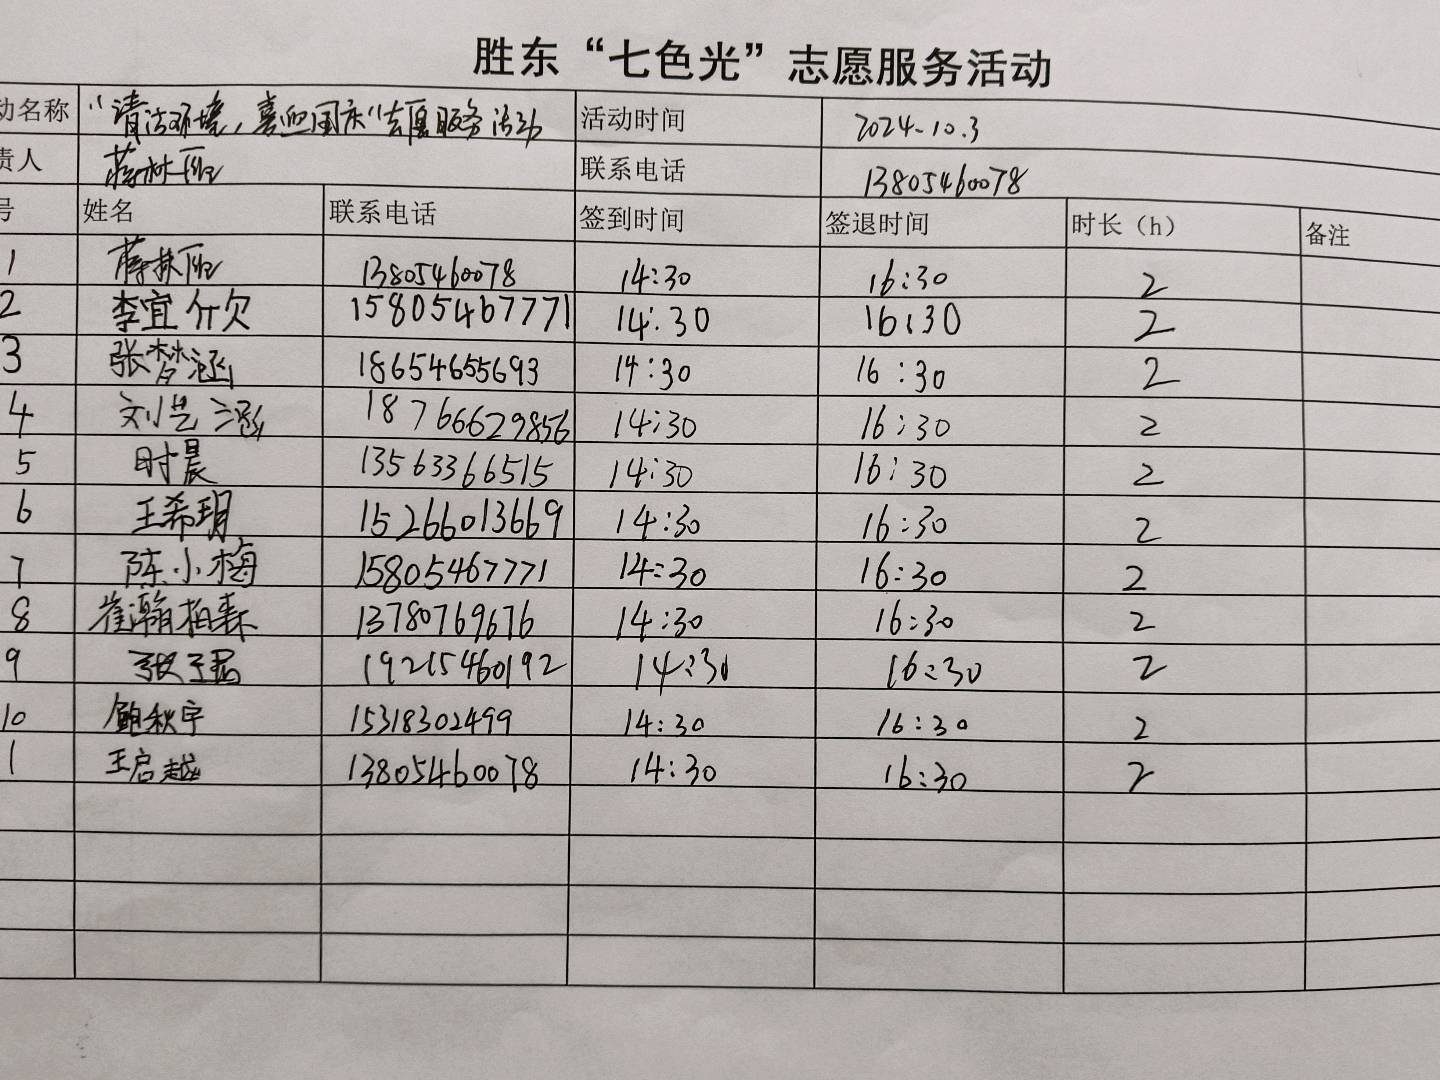 胜东“七色光”志愿服务活动
动名称 “清洁环境，喜迎国庆”志愿服务活动 活动时间 2024.10.3
责人 蒋林 联系电话 13805460078
号 姓名 联系电话 签到时间 签退时间 时长（h） 备注
1 蒋林 13805460078 14:30 16:30 2
2 李宜欣 15805467771 14:30 16:30 2
3 张梦涵 18654655693 14:30 16:30 2
4 刘艺涵 18766629856 14:30 16:30 2
5 时晨 13563366515 14:30 16:30 2
6 王希玥 15266013669 14:30 16:30 2
7 陈小梅 15805467771 14:30 16:30 2
8 崔瀚柏森 13780769676 14:30 16:30 2
9 张子 19215460192 14:30 16:30 2
10 鲍秋宇 15318302499 14:30 16:30 2
1 王启越 13805460078 14:30 16:30 2